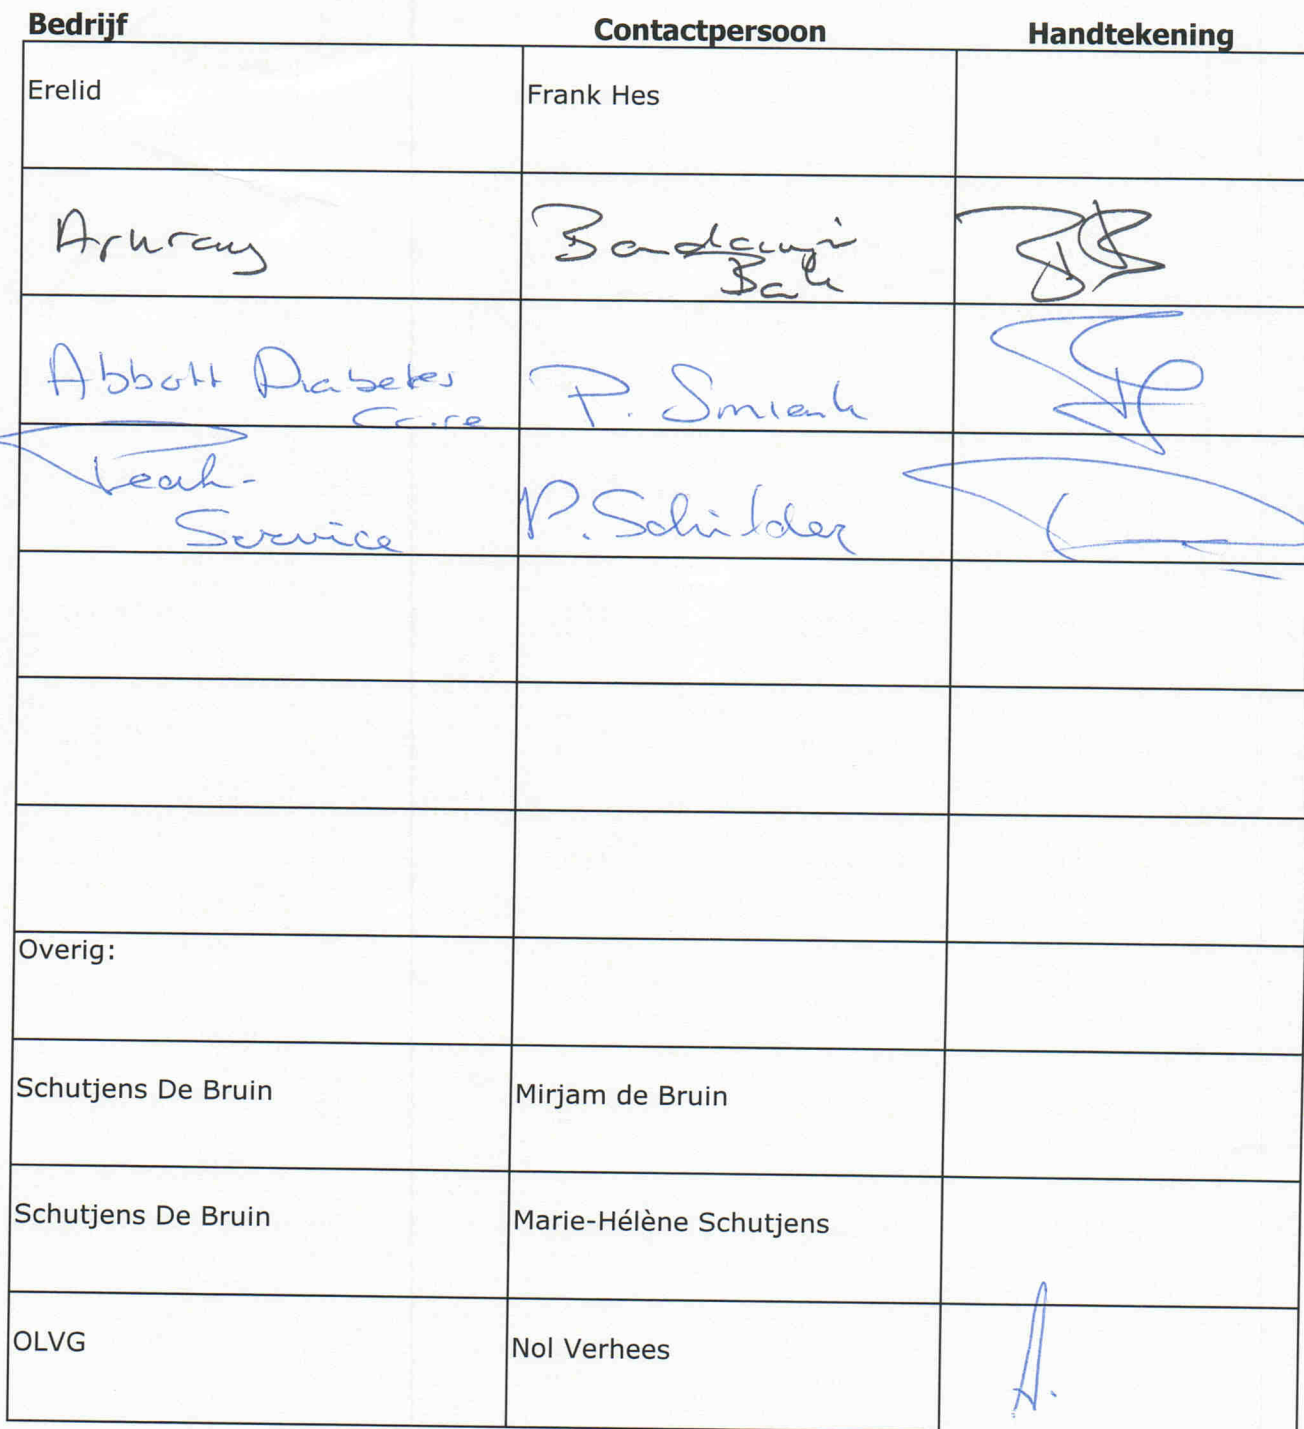 Bedrijf Contactpersoon Handtekening
Erelid Frank Hes
Arkray
Bali
Abbott Diabetes P. Smienk
Care
Service P. Schilder
Overig:
Schutjens De Bruin Mirjam de Bruin
Schutjens De Bruin Marie-Hélène Schutjens
OLVG Nol Verhees A.